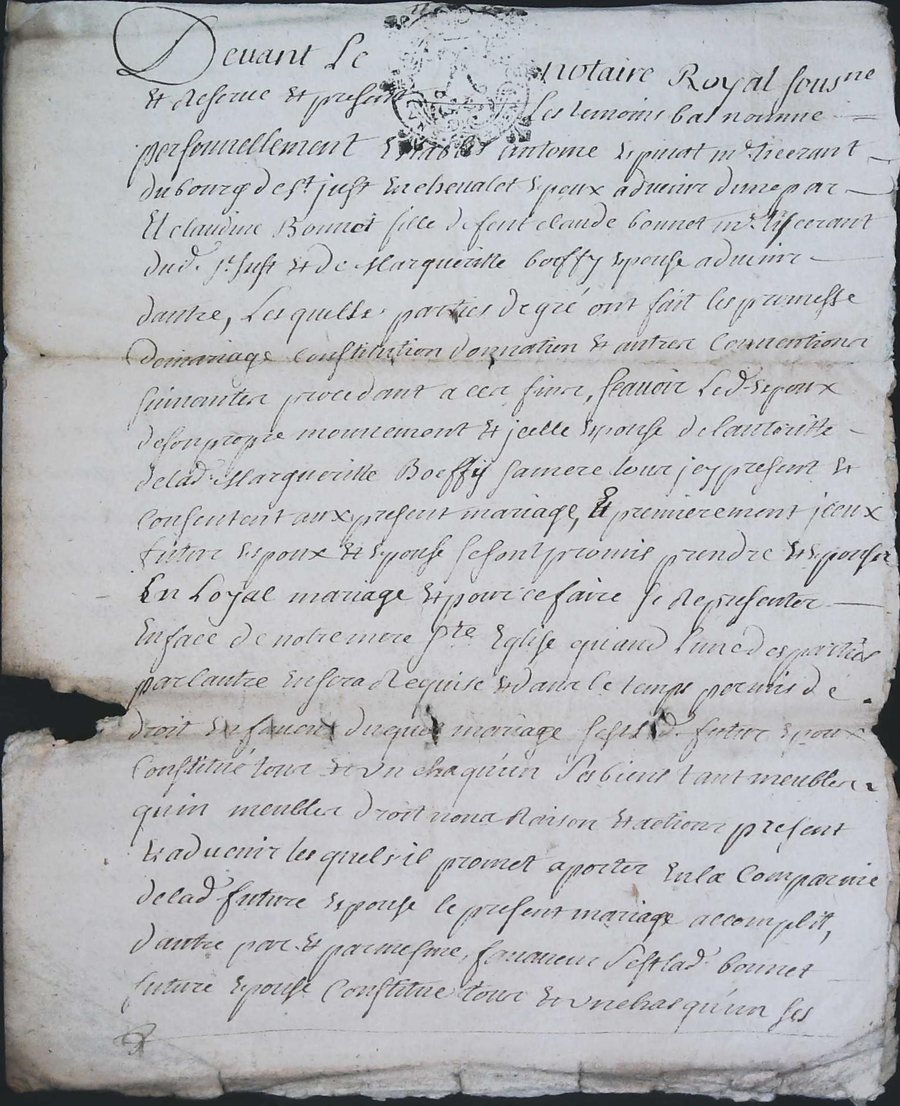 Devant Le notaire Royal sousne
et Reserve et presen Les temoins bas nomme
personnellement Establi antoine Espinat mr. tiscerant
du bourg de st just En chevalet Epoux advenir dune par
Et claudine Bonnet fille de feut claude bonnet mr. tiscerant
dud. st Just et de Margueritte boeffy epouse advenir
dautre, Lesquelles parties de gré ont fait les promesse
de mariage Constitution donnation et autres Conventions
suivantes procedant a ces fins, scavoir Led. epoux
de son propre mouvement et jcelle epouse de lautoritte
de lad. Margueritte Boeffy sa mere tous jcy present et
Consentent aux present mariage, Et premierement jceux
futur epoux et epouse se sont promis prendre et epouser
En Loyal mariage et pour ce faire se Representer
En face de notre mere Ste Eglise quand lune des parties
par lautre En sera Requise et dans le temps permis de
droit En faveur duquel mariage led. futur epoux
Constitué tous et un chaqu'un ses biens tant meubles
qu'in meubles droit noms Raison et actions present
et advenir lesquels il promet aporter En la Compagnie
de lad. future epouse le present mariage accomplit,
dautre par et par mesme faveur lad. bonnet
future epouse Constitue tous et un chasqu'un ses